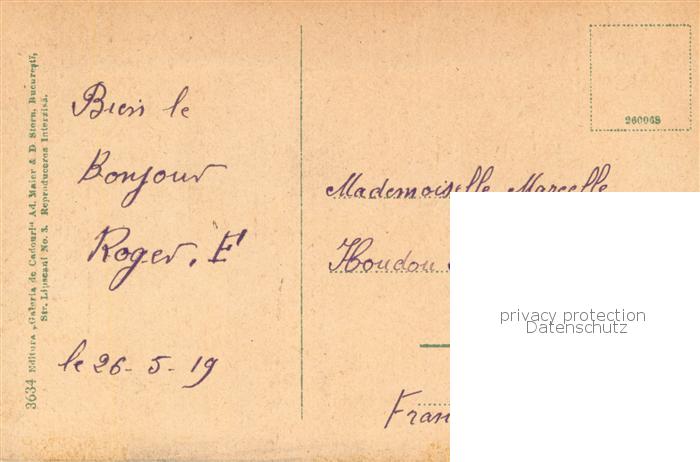 3634 Editura „Galeria de Cadouri“ Ad. Maier & D. Stern, Bucureşti,
Str. Lipscani No. 3. Reproducerea Interzisă.
Bien le
Bonjour
Roger. E'
le 26-5-19
260968
Mademoiselle Marcelle
Houdou
Fran
privacy protection
Datenschutz